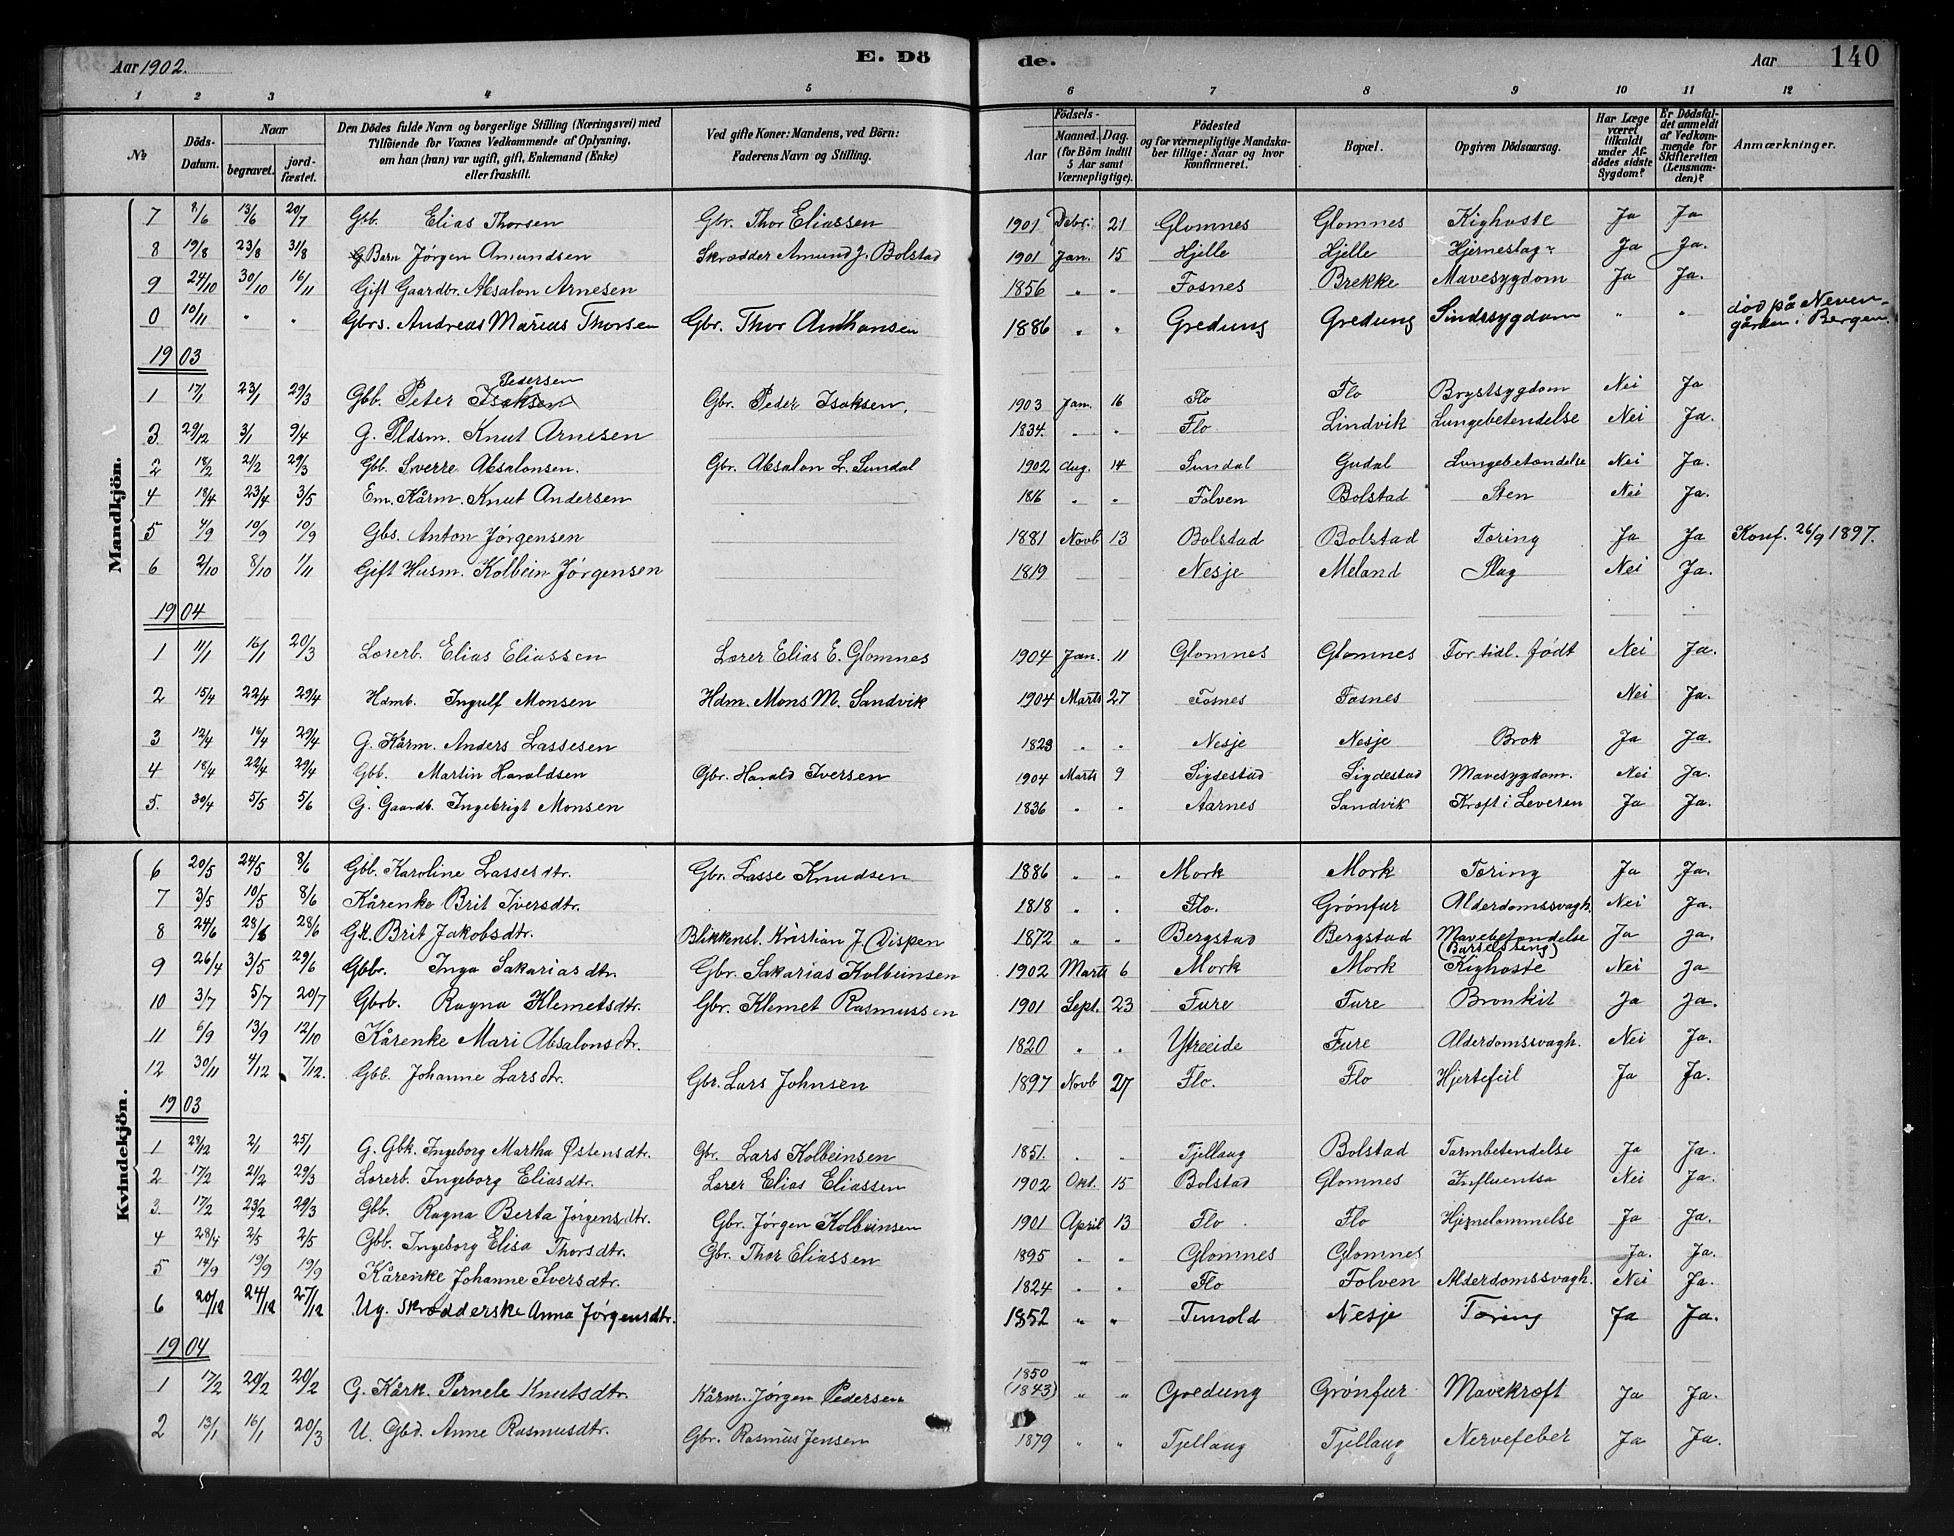 Aar 1902. E. Dö de. Aar 140
1 2 3 4 5 6 7 8 9 10 11 12
No Döds-Datum. Naar begravet. jord-fæstet. Den Dödes fulde Navn og borgerlige Stilling (Næringsvei) med Tilföiende for Voxnes Vedkommende af Oplysning, om han (hun) var ugift, gift, Enkemand (Enke) eller fraskilt. Ved gifte Koner: Mandens, ved Börn: Faderens Navn og Stilling. Födsels- Aar Maaned. (for Börn indtil 5 Aar samt Værnepligtige). Dag. Födested og for værnepligtige Mandska-ber tillige: Naar og hvor konfirmeret. Bopæl. Opgiven Dödsaarsag. Har Læge været tilkaldt under Af-dödes sidste Sygdom? Er Dödsfal-det anmeldt af Vedkom-mende for Skifteretten (Lensman-den)? Anmærkninger.
Mandkjön.
7 8/6 13/6 20/7 Gbb. Elias Thorsen Gbr. Thor Eliassen 1901 Debr. 21 Glomnes Glomnes Kighoste Ja Ja
8 19/8 23/8 31/8 Barn Jørgen Amundsen Skrædder Amund J. Bolstad 1901 Jan. 15 Hjelle Hjelle Hjerneslag Ja Ja.
9 24/10 30/10 16/11 Gift Gaardbr. Absalon Arnesen 1856 " " Fosnes Brekke Mavesygdom Ja Ja.
0 10/11 " " Gbrs. Andreas Marius Thorsen Gbr. Thor Anthonsen 1886 " " Gredung Gredung Sindssygdom " " død på Neven-
gården i Bergen.
1903
1 17/1 23/1 29/3 Gbb. Peter Isaksen Pedersen Gbr. Peder Isaksen, 1903 Jan. 16 Flo Flo Brystsygdom Nei Ja
3 29/12 3/1 9/4 G. Pldsm. Knut Arnesen 1834. " " Flo Lindvik Lungebetendelse Nei Ja.
2 18/2 21/2 29/3 Gbb. Sverre Absalonsen. Gbr. Absalon L. Sundal 1902 Aug. 14 Sundal Gudal Lungebetændelse Nei Ja.
4 18/4 23/4 3/5 Em. Kårm. Knut Andersen 1816 " " Folven Bolstad Sten Nei Ja.
5 4/9 10/9 10/9 Gbs. Anton Jørgensen 1881 Novb 13 Bolstad Bolstad Tæring Ja Ja Konf. 26/9 1897.
6 2/10 8/10 1/11 Gift Husm. Kolbein Jørgensen 1819 Nesje Meland Slag Nei Ja.
1904
1 11/1 16/1 20/3 Lærerb. Elias Eliassen Lærer Elias E. Glomnes 1904 Jan. 11 Glomnes Glomnes For tidl. født Nei Ja.
2 15/4 22/4 29/4 Hdmb. Ingulf Monsen Hdm. Mons M. Sandvik 1904 Marts 27 Fosnes Fosnes Nei Ja.
3 12/4 16/4 29/4 G. Kårm. Anders Lassesen 1829 " " Nesje Nesje Brok Ja Ja.
4 18/4 22/4 29/4 Gbb. Martin Haraldsen Gbr. Harald Iversen 1904 Marts 9 Sigdestad Sigdestad Mavesygdom. Nei Ja.
5. 30/4 5/5 5/6 G. Gaardb. Ingebrigt Monsen 1836 " " Aarnes Sandvik Kræft i Leveren Ja Ja.
Kvindekjön.
6 20/5 24/5 8/6 Gbb. Karoline Lassesdtr. Gbr. Lasse Knudsen 1886 " " Mork Mork Tæring Ja Ja.
7 3/5 10/5 8/6 Kårenke Brit Iversdtr. 1818 " " Flo. Grónfur Alderdomssvagh. Nei Ja.
8 24/6 28/6 28/6 GK. Brit Jakobsdtr. Blikkensl. Kristian J. Dispen 1872 " " Bergstad Bergstad Mavebetendelse (Barselsreng) Ja Ja.
9 26/4 3/5 29/6 Gbbr. Inga Sakariasdtr. Gbr. Sakarias Kolbeinsen 1902 Marts 6 Mork Mork Kighoste Nei Ja
10 3/7 5/7 20/7 Gbrb. Ragna Klemetsdtr. Gbr. Klemet Rasmussen 1901 Sept. 23 Fure Fure Bronkit Ja Ja.
11 6/9 13/9 12/10 Kårenke Mari Absalonsdtr. 1820 " " Ytreeide Fure Alderdomssvagh. Nei Ja.
12 30/11 4/12 7/12. Gbb. Johanne Larsdtr. Gbr. Lars Johnsen 1897 Novb 27 Flo. Flo Hjertefeil Ja Ja.
1903
1 29/12 2/1 25/1 G. Gbk. Ingeborg Martha Østensdtr. Gbr. Lars Kolbeinsen 1851. " " Tjellaug Bolstad Tarmbetendelse Ja Ja.
2 17/2 21/2 29/3 Lærerb. Ingeborg Eliasdtr. Lærer Elias Eliassen 1902 Okt. 15 Bolstad Glomnes Influentsa Nei Ja.
3. 17/2 23/2 29/3 Gbb. Ragna Berta Jørgensdtr. Gbr. Jørgen Kolbeinsen 1901 April 13 Flo Flo Hjernelammelse Ja Ja.
4 28/4 2/5 2/5 Gbb. Ingeborg Elisa Thorsdtr. Gbr. Thor Eliassen 1895 " " Glomnes Glomnes Ja. Ja.
5 14/9 19/9 19/9 Kårenke Johanne Iversdtr. 1824 " " Flo Folven Alderdomssvagh. Nei Ja.
6 20/12 24/12 27/12 Ug. Skrædderske Anna Jørgensdtr. 1852 " " Tunold Nesje Tæring Ja Ja.
1904
1 17/2 20/2 20/2 G. Kårk. Pernele Knutsdtr. Kårm. Jørgen Pedersen 1850 (1843) " " Gredung Grønfur Mavekræft Ja Ja.
2 13/1 16/1 20/3 U. Gbd. Anne Rasmusdtr. Gbr. Rasmus Jensen 1879 " " Tjellaug Tjellaug Nervefeber Ja Ja.